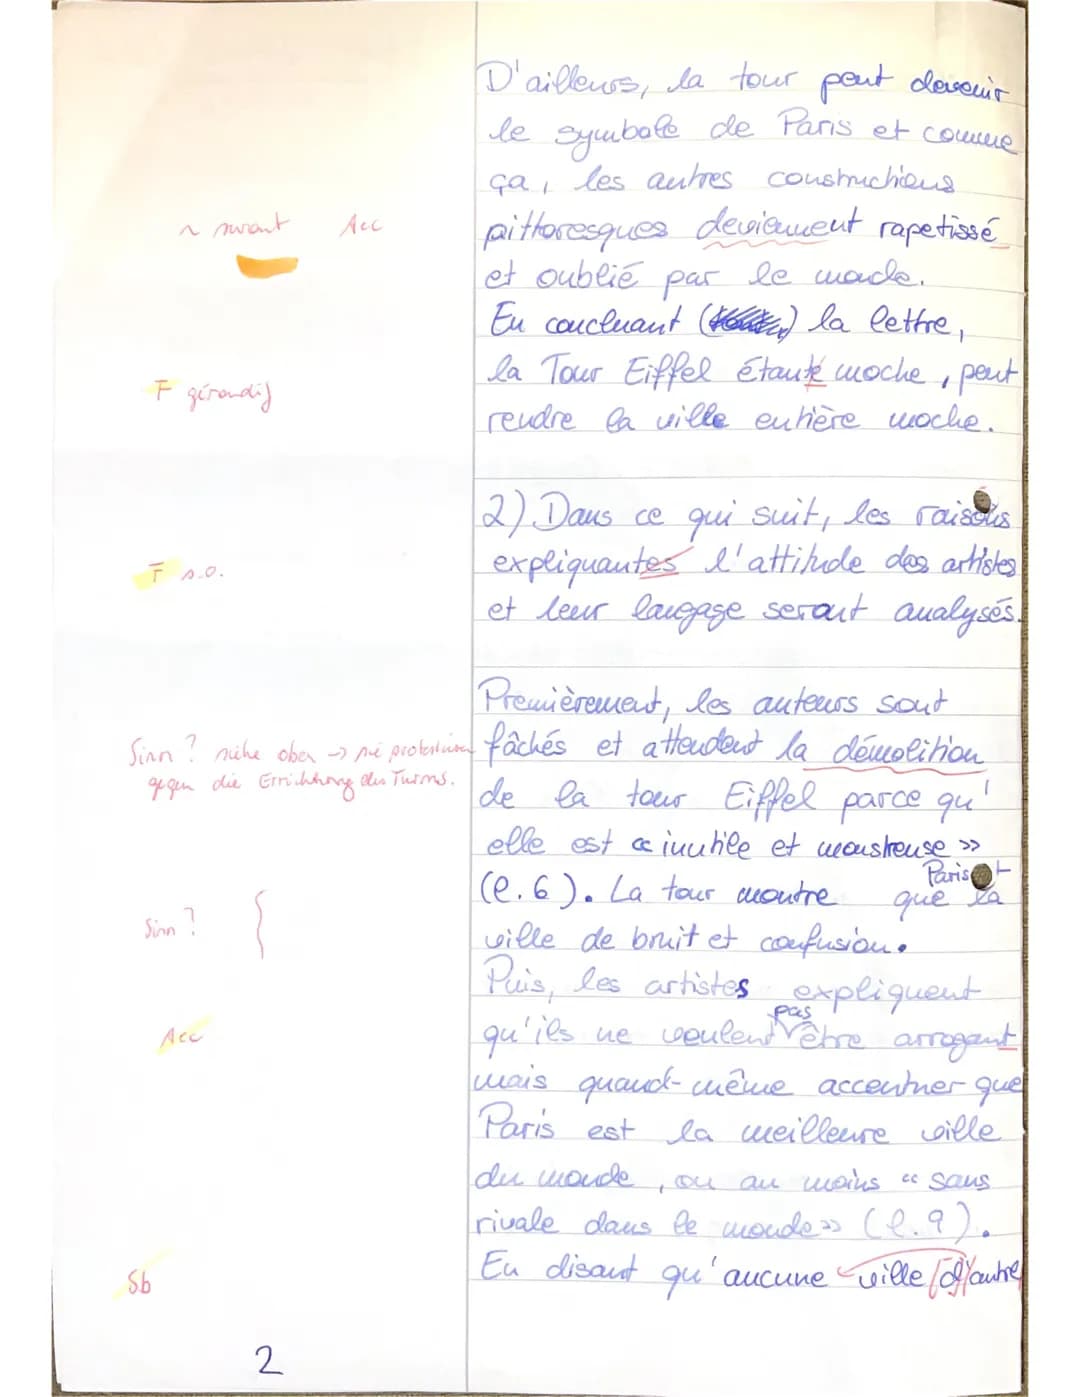 D'ailleurs, la tour peut devenir
le symbole de Paris et comme
ça, les autres constructions
~ Acc
pittoresques deviennent rapetissé
et oublié par le monde.
En concluant () la lettre,
la Tour Eiffel étante moche, peut
F gérondif
rendre la ville entière moche.
2) Dans ce qui suit, les raisons
expliquantes l'attitude des artistes
F s.o.
et leur langage seront analysés.
Premièrement, les auteurs sont
Sinn? siehe oben → sie protestieren
fâchés et attendent la démolition
gegen die Errichtung des Turms.
de la tour Eiffel parce qu'
elle est « inutile et monstreuse »
(l.6). La tour montre que la
Paris
Sinn?
ville de bruit et confusion.
Puis, les artistes expliquent
qu'ils ne veulent pas être arrogant
Acc
mais quand-même accentuer que
Paris est la meilleure ville
du monde, ou au moins « sans
rivale dans le monde » (l.9).
En disant qu'aucune ville [d]'autre
Sb
2